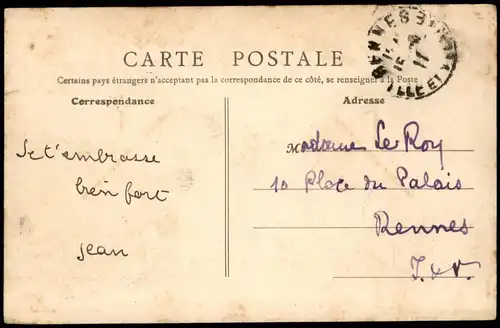 CARTE POSTALE
Certains pays étrangers n'acceptant pas la correspondance de ce côté, se renseigner à la Poste
Correspondance
Adresse
Je t'embrasse
bien fort
Jean
Madame Le Roy
10 Place du Palais
Rennes
I.&V.
RENNES
ILLE ET